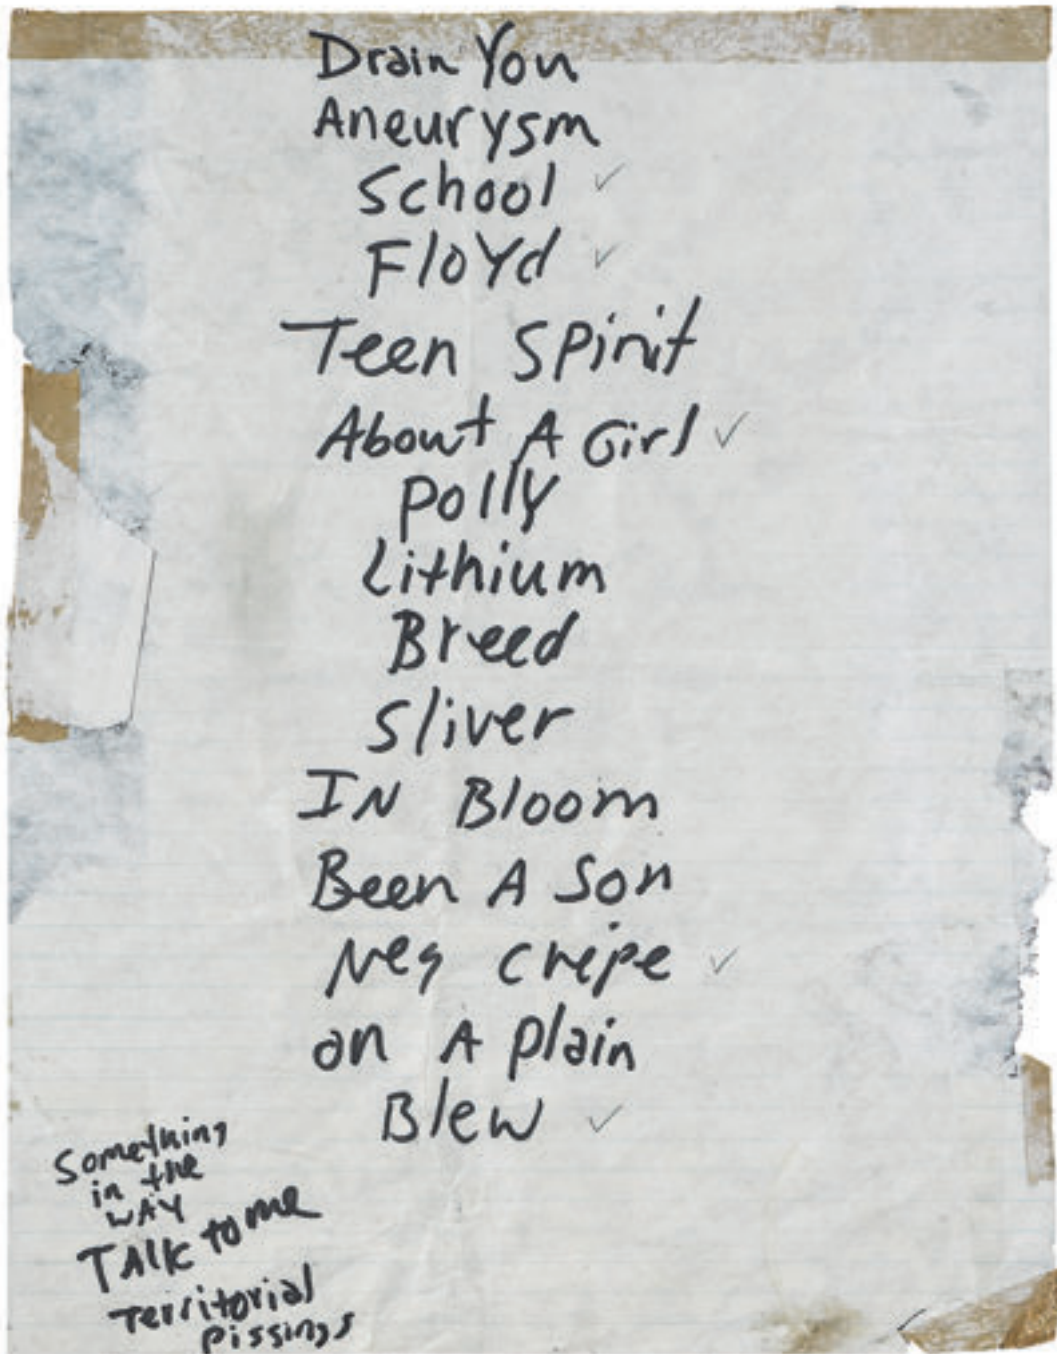 Drain You
Aneurysm
School ✓
Floyd ✓
Teen Spirit
About A Girl ✓
Polly
Lithium
Breed
Sliver
IN Bloom
Been A Son
Neg creipe ✓
on A plain
Blew ✓
Something
in the
WAY
TAlk to me
Territorial
pissings